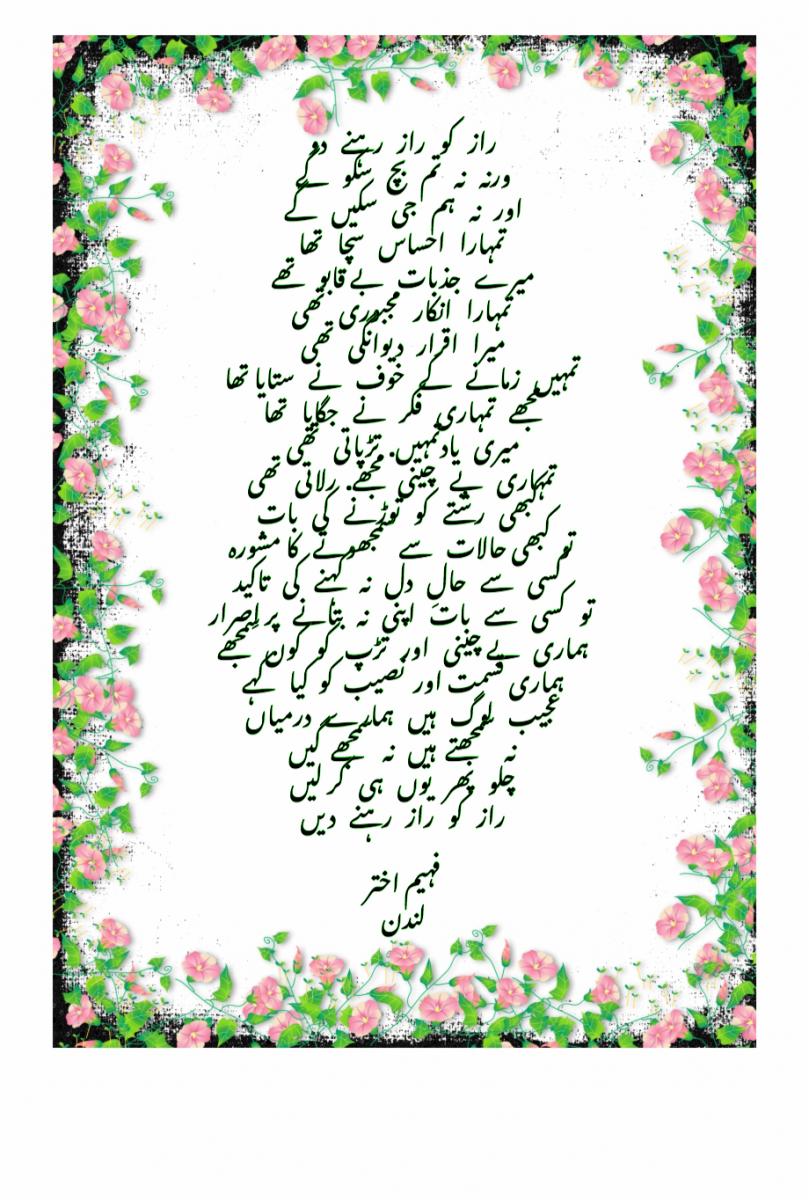 راز کو راز رہنے دو
ورنہ نہ تم بچ سکو گے
اور نہ ہم جی سکیں گے
تمہارا احساس سچا تھا
میرے جذبات بے قابو تھے
تمہارا انکار مجبوری تھی
میرا اقرار دیوانگی تھی
تمہیں زمانے کے خوف نے ستایا تھا
مجھے تمہاری فکر نے جگایا تھا
میری یاد تمہیں تڑپاتی تھی
تمہاری بے چینی مجھے رلاتی تھی
کبھی رشتے کو توڑنے کی بات
تو کبھی حالات سے سمجھوتے کا مشورہ
کسی سے حالِ دل نہ کہنے کی تاکید
تو کسی سے بات اپنی نہ بتانے پر اصرار
ہماری بے چینی اور تڑپ کو کون سمجھے
ہماری قسمت اور نصیب کو کیا کہے
عجیب لوگ ہیں ہمارے درمیاں
نہ سمجھتے ہیں نہ سمجھے گیں
چلو پھر یوں ہی کر لیں
راز کو راز رہنے دیں
فہیم اختر
لندن